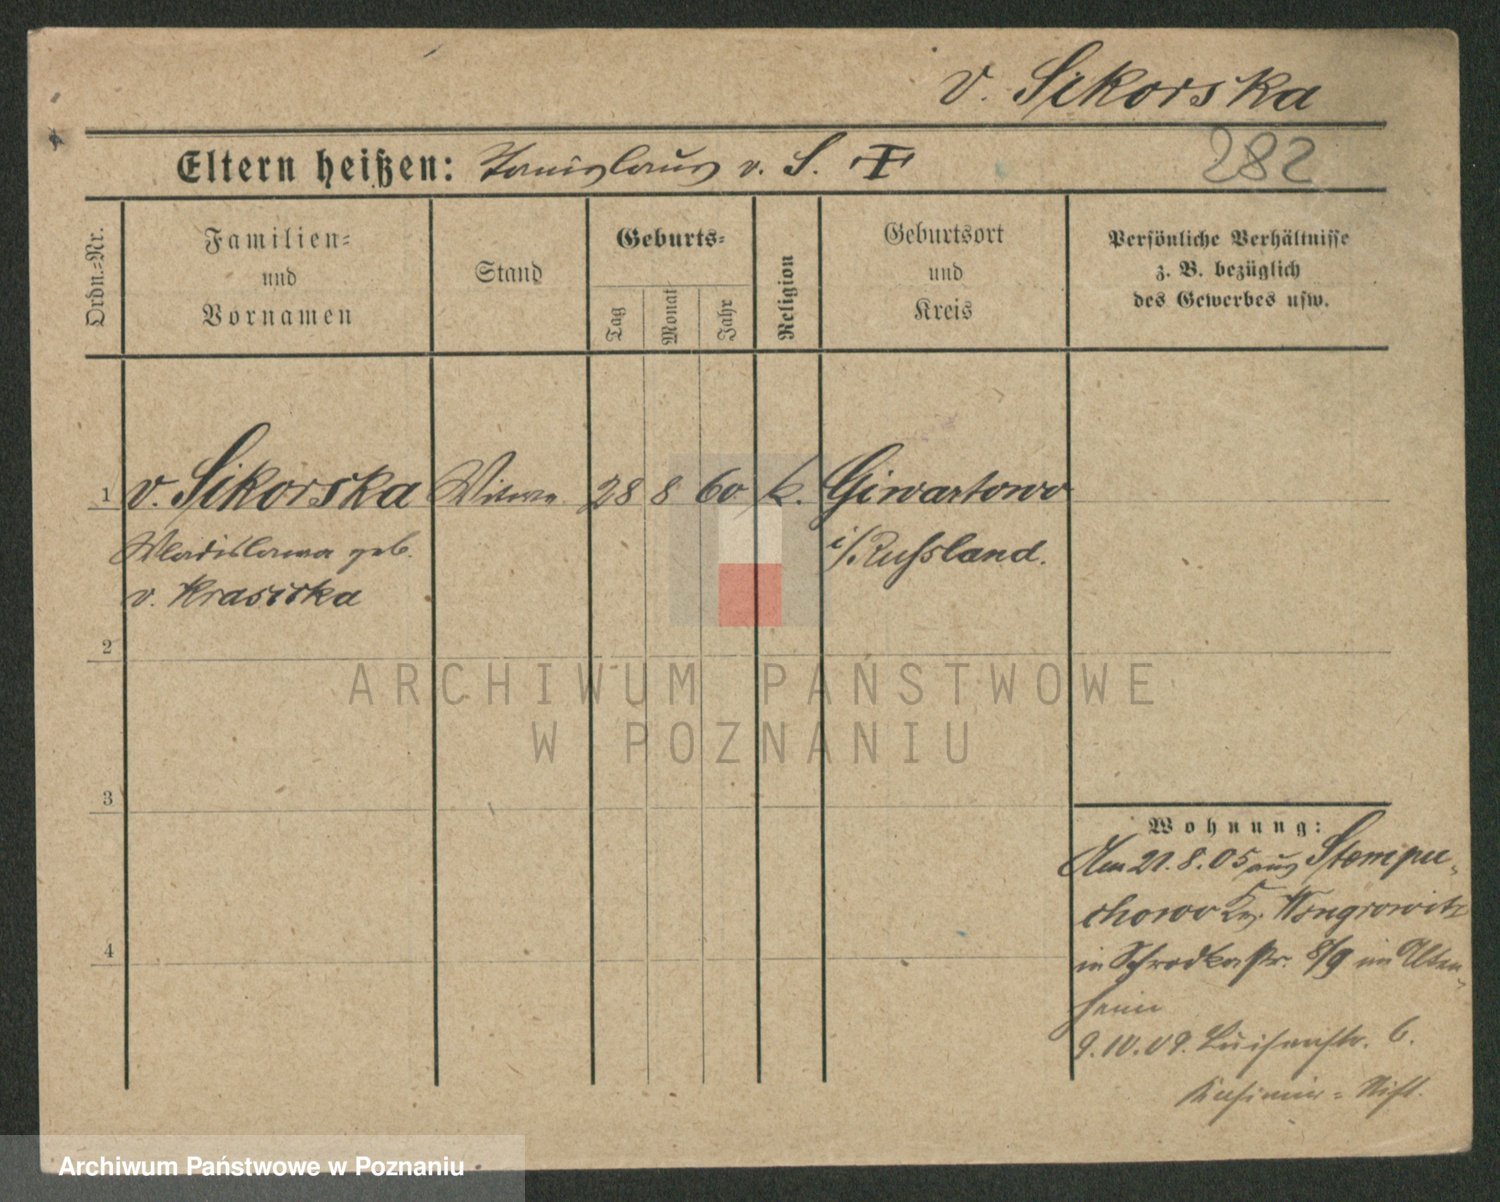 v. Sikorska
Eltern heißen: Stanislaus v. S. †
282
Ordn.-Nr.
Familien- und Vornamen
Stand
Geburts-
Tag
Monat
Jahr
Religion
Geburtsort und Kreis
Persönliche Verhältnisse
z. B. bezüglich
des Gewerbes usw.
1 v. Sikorska Witwe 28 8 60 k. Giwartowo
Wladislawa geb. i/Russland.
v. Krasicka
2
3
4
Wohnung:
Am 21.8.05 aus Stempu-
chowo Kr. Wongrowitz
in Schrodkastr. 8/9 im Alten-
heim
9.10.09. Luisenstr. 6.
ARCHIWUM PAŃSTWOWE
W POZNANIU
Archiwum Państwowe w Poznaniu